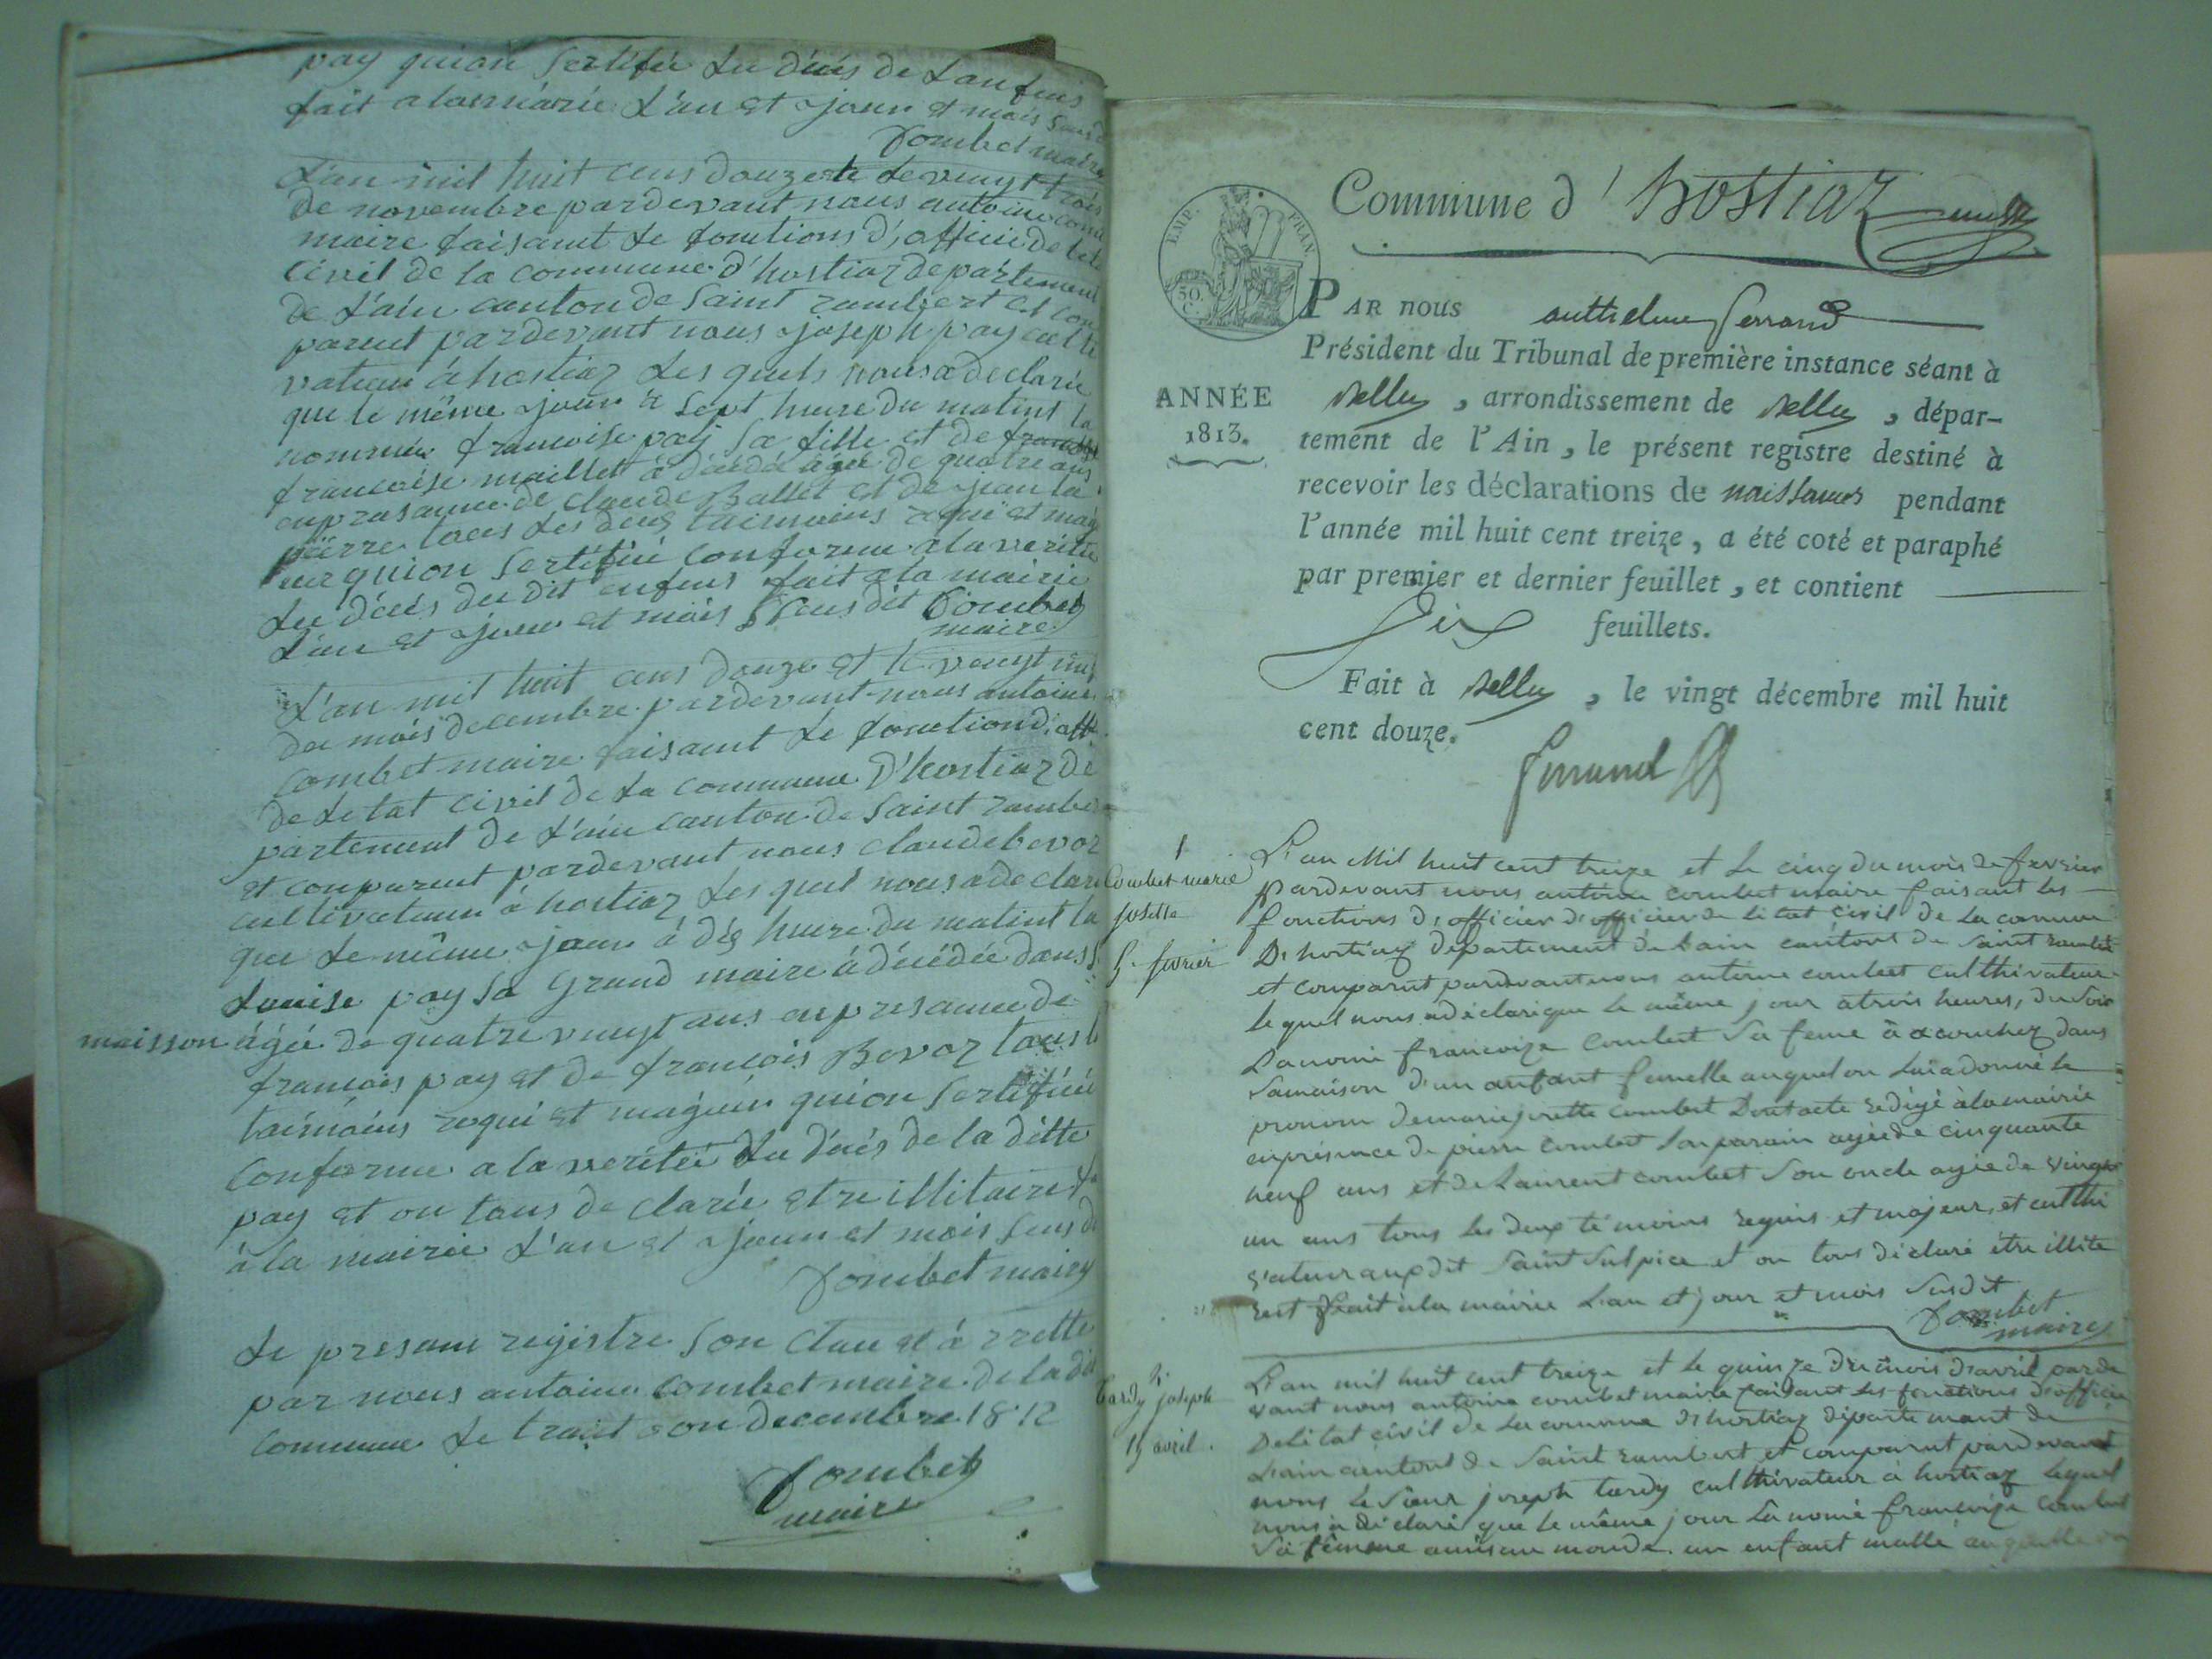 pay quion sertifié du décés de l'anfens
fait a la mairie l'an et jour et mois susd
Combet maire
L'an mil huit cens douze et le veuyt trois
de novembre pardevant nous antoine com
maire faisant le fonctions d'officié de leta
civil de la commune d'hostiaz departement
de l'ain canton de saint rambert et con
parent pardevant nous joseph pay culti
vateur à hostiaz les quels nous a declarée
que le même jour à sept heure du matint la
nommée francoise pay sa fille et de
francoise maillet à décédé âgée de quatre ans
en presanne de claude Ballet et de jean la
pierre tous les deus taimoins requi et maj
eur quion sertifiié conforme a la verité
du décés du dit enfens fait a la mairie
l'an et jour et mois susdit Combet
maire
L'an mil huit cens douze et le veuyt
du mois decembre pardevant nous antoine
combet maire faisant le fonction d'off
de letat civil de la commune d'hostiaz de
partement de l'ain canton de saint rambe
et conparent pardevant nous claude bevoz
cultivateur à hostiaz les quel nous a declare
que le même jour à dis heure du matint la
Louise pay sa grand maire à décédée dans s
maisson âgée de quatre veuyt ans en presanne de
francois pay et de francois Bevoz tous l
taimoins requi et majeur quion sertifiié
conforme a la veritée du décés de la ditte
pay et on tous declarée etre illitaire f
à la mairie l'an et jour et mois sus d
Combet maire
Le presant registre son clau et à rrette
par nous antoine combet maire de la di
commune le trait on decembre 1812
Combet
maire
Commune d'hostiaz
EMP. FRAN.
50. C.
ANNÉE
1813.
PAR nous anthelme Ferrand
Président du Tribunal de première instance séant à
Belley, arrondissement de Belley, dépar-
tement de l'Ain, le présent registre destiné à
recevoir les déclarations de naissances pendant
l'année mil huit cent treize, a été coté et paraphé
par premier et dernier feuillet, et contient
Six feuillets.
Fait à Belley, le vingt décembre mil huit
cent douze.
Ferrand
1
Combet marie
josette
5. fevrier
L'an Mil huit cent treize et le cinq du mois de fevrier
Pardevant nous antoine combet maire faisant les
fonctions d'officier d'officier de l'état civil de la commune
D'hostiaz département de Lain cantont de saint rambert
et comparut pardevant nous antoine combet culthivateur
lequel nous a déclaré que le même jour à trois heures, du soir
La nomé francoize Combet sa feme â acouchez dans
sa maison d'un anfant femelle auquel on lui a donné le
pronom de marie josette combet Dont acte redigé à la mairie
en présence de pierre combet son parain agé de cinquante
neuf ans et de Laurent combet son oncle agée de vingt
un ans tous les deux témoins requis et majeur, et culthi
vateur au dit saint sulpice et on tous déclaré être illite
rest Fait à la mairie L'an et jour et mois susdit
Combet
maire
2.
tardy joseph
15 avril.
L'an mil huit cent treize et le quinze du mois d'avril parde
vant nous antoine combet maire faisant les fonctions d'officier
De l'état civil de la commune d'hostiaz départemant de
L'ain cantont de saint rambert et comparut pardevant
nous le sieur joseph tardy culthivateur à hostiaz lequel
nous a déclaré que le même jour la nomé francoize Combet
sa fémme a mis au monde un enfant malle